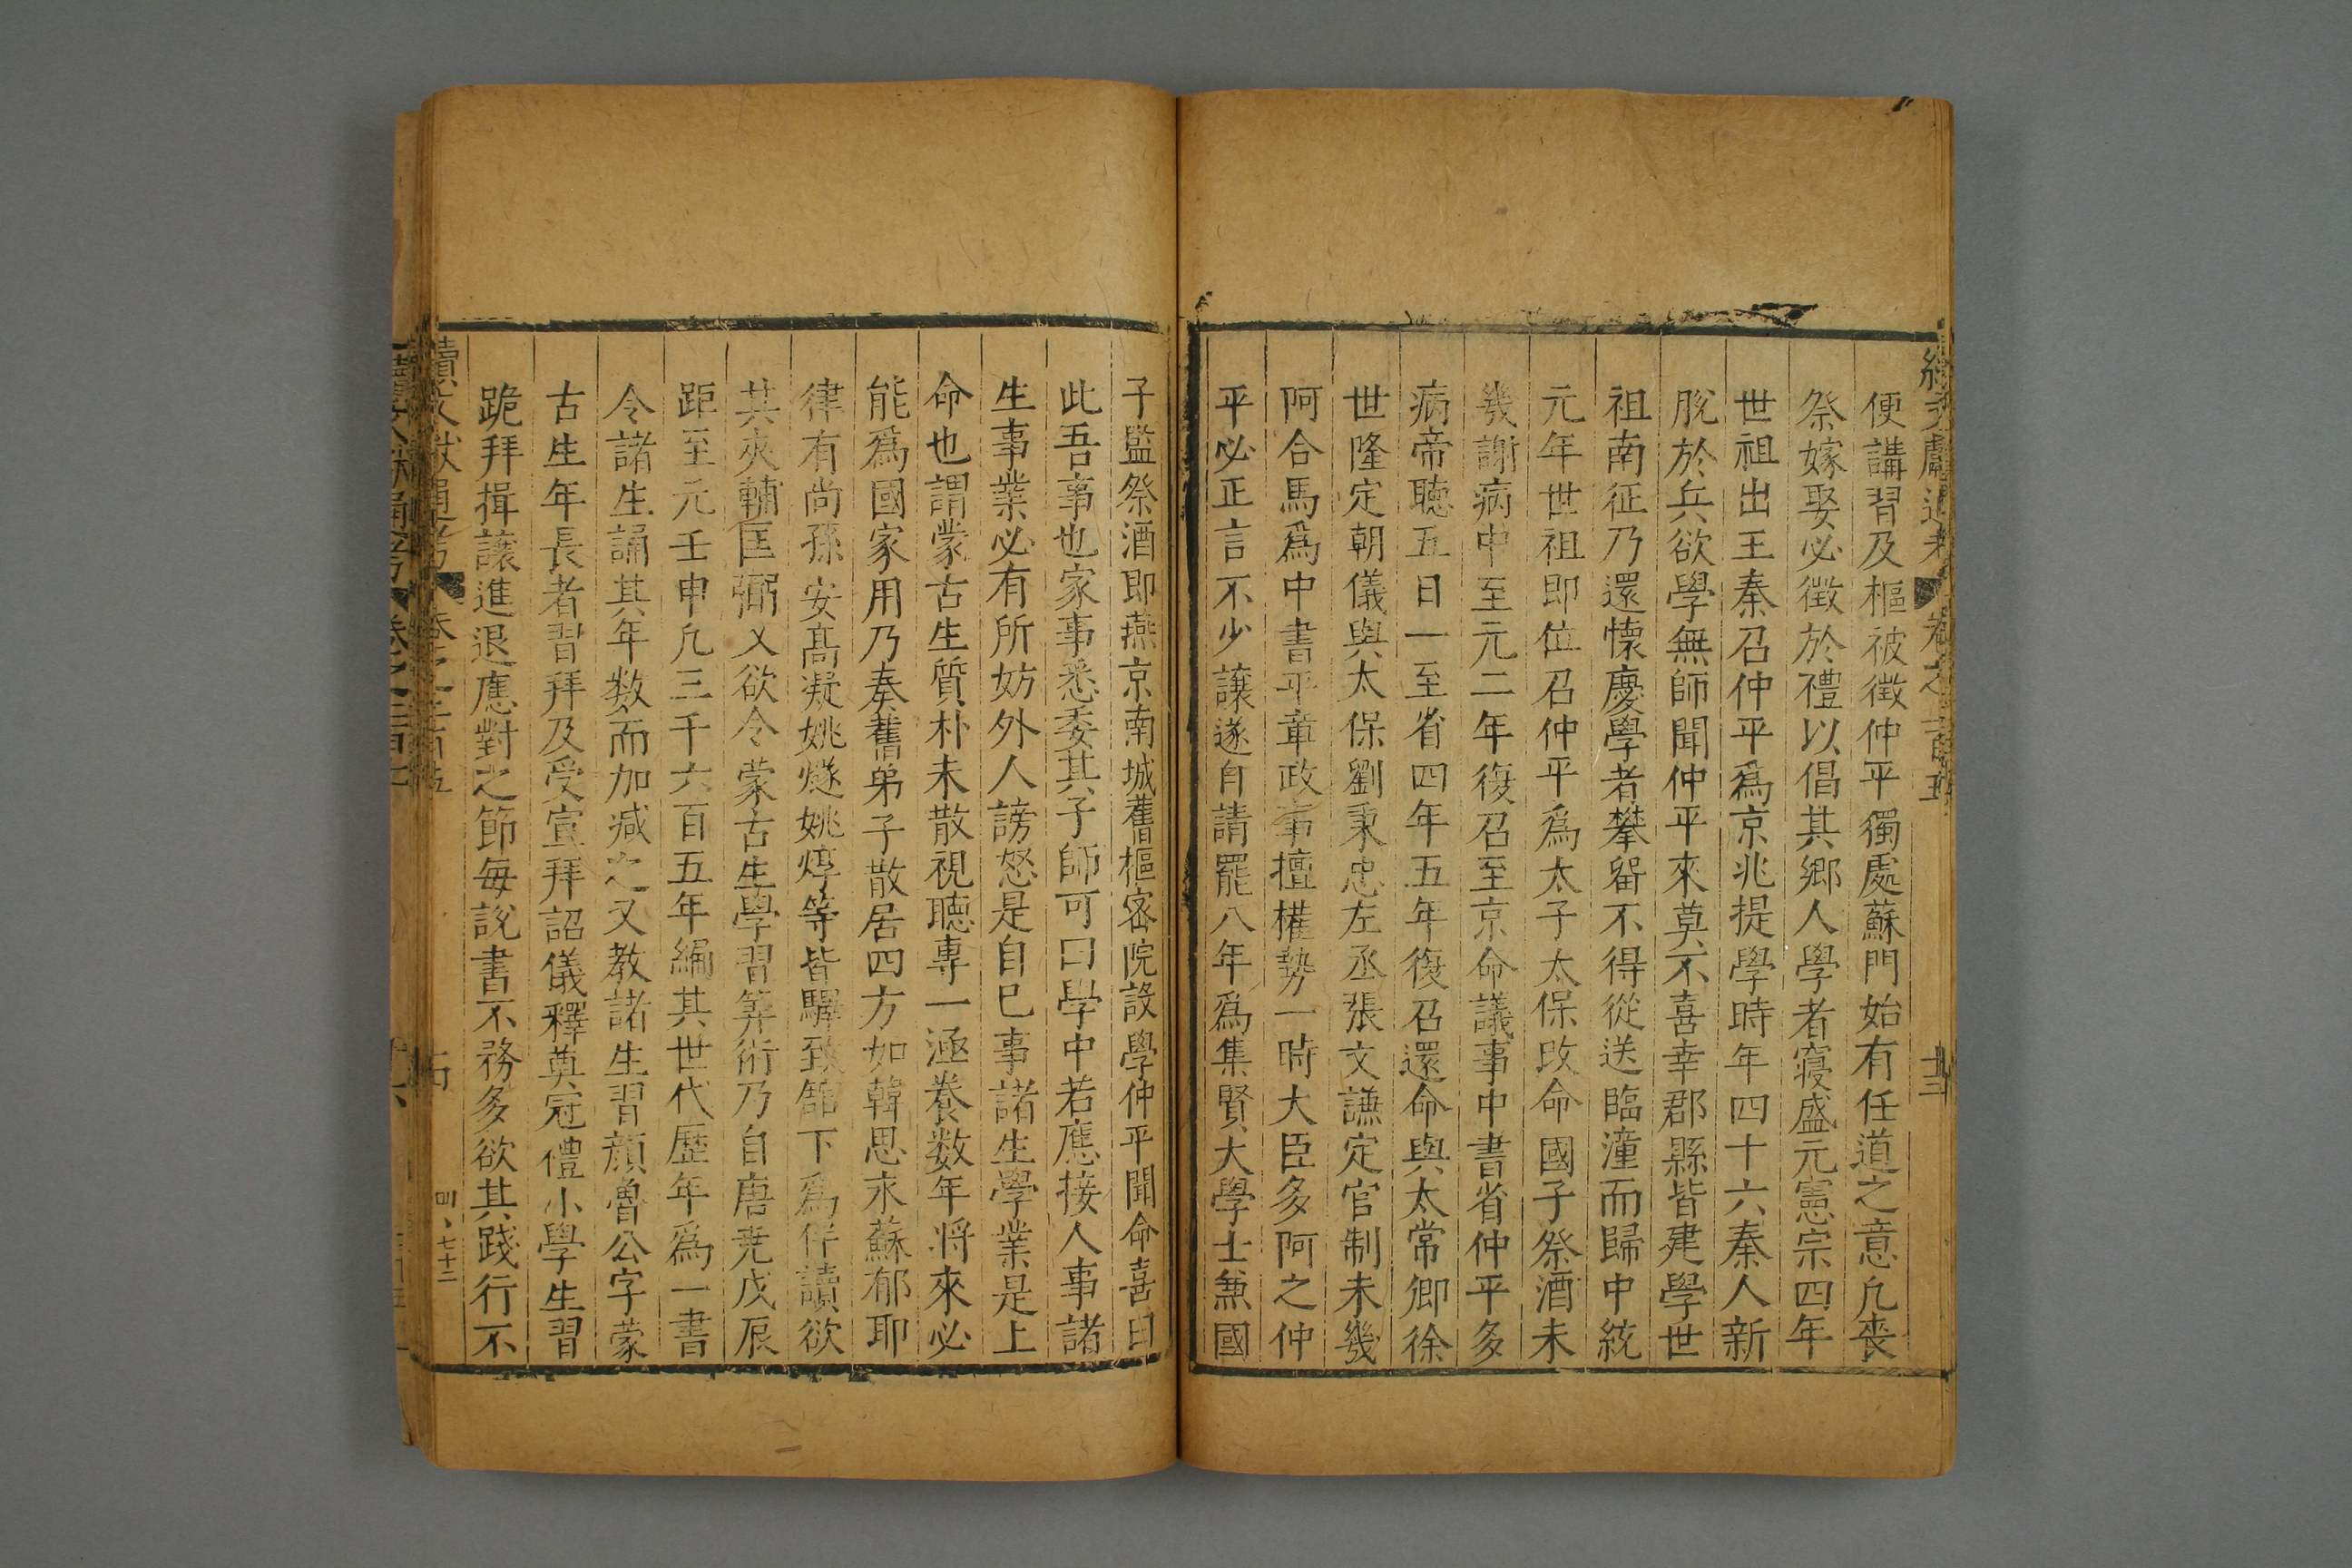 便講習及樞被徵仲平獨處蘇門始有任道之意凢喪
祭嫁娶必徵於禮以倡其鄉人學者寖盛元憲宗四年
世祖出王秦召仲平爲京兆提學時年四十六秦人新
脫於兵欲學無師聞仲平來莫不喜幸郡縣皆建學世
祖南征乃還懷慶學者攀留不得從送臨潼而歸中統
元年世祖即位召仲平爲太子太保改命國子祭酒未
幾謝病中至元二年復召至京命議事中書省仲平多
病帝聴五日一至省四年五年復召還命與太常卿徐
世隆定朝儀與太保劉秉忠左丞張文謙定官制未幾
阿合馬爲中書平章政事擅權勢一時大臣多阿之仲
平必正言不少讓遂自請罷八年爲集賢大學士兼國
子監祭酒即燕京南城舊樞密院設學仲平聞命喜曰
此吾事也家事悉委其子師可曰學中若應接人事諸
生事業必有所妨外人謗怒是自巳事諸生學業是上
命也謂蒙古生質朴未散視聴專一涵養数年将來必
能爲國家用乃奏舊弟子散居四方如韓思永蘇郁耶
律有尚孫安髙凝姚燧姚焞等皆驛致舘下爲伴讀欲
其夾輔匡弼又欲令蒙古生學習筭術乃自唐尭戊辰
距至元壬申凢三千六百五年編其世代歷年爲一書
令諸生誦其年数而加减之又教諸生習顔魯公字蒙
古生年長者習拜及受宣拜詔儀釋奠冠禮小學生習
跪拜揖讓進退應對之節每説書不務多欲其踐行不
續文獻通考
七十二